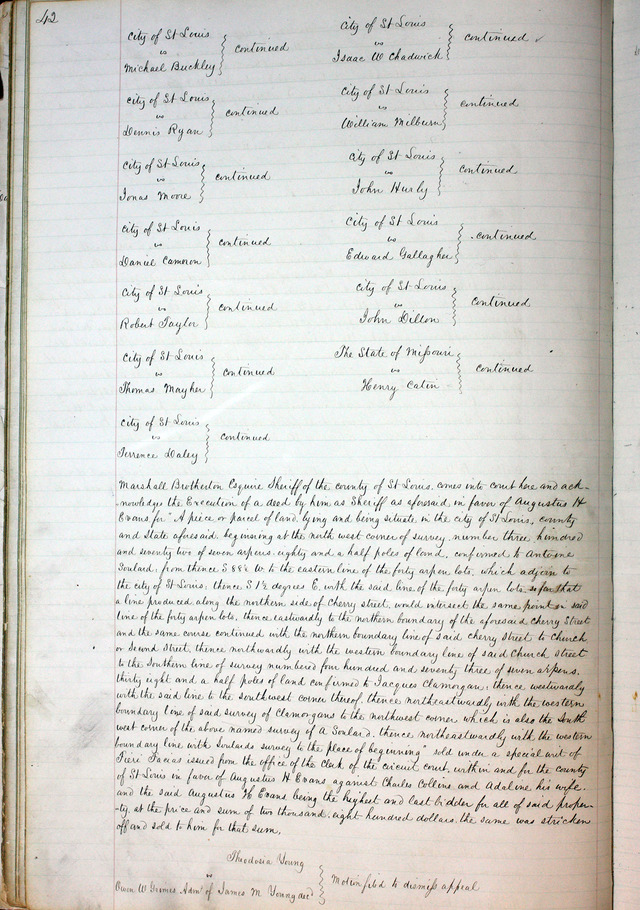 42
City of St Louis
vs
Michael Buckley
continued
City of St Louis
vs
Isaac W Chadwick
continued
City of St Louis
vs
Dennis Ryan
continued
City of St Louis
vs
William Milburn
continued
City of St Louis
vs
Jonas Moore
continued
City of St Louis
vs
John Hurly
continued
City of St Louis
vs
Daniel Cameron
continued
City of St Louis
vs
Edward Gallagher
continued
City of St Louis
vs
Robert Taylor
continued
City of St Louis
vs
John Dillon
continued
City of St Louis
vs
Thomas Mayher
continued
The State of Missouri
vs
Henry Catin
continued
City of St Louis
vs
Terrence Daley
continued
Marshall Brotherton Esquire Sheriff of the county of St Louis, comes into court here and ack-
-nowledges the Execution of a deed by him as Sheriff as aforesaid, in favor of Augustus H
Evans, for "A piece or parcel of land, lying and being situate, in the city of St Louis, county
and State aforesaid, beginning at the north west corner of survey, number three hundred
and seventy two of seven arpens, eighty and a half poles of land, confirmed to Antoine
Soulard; from thence S 88½ W. to the eastern line of the forty arpen lots, which adjoin to
the city of St Louis; thence S 1½ degrees E. with the said line of the forty arpen lots so far that
a line produced along the northern side of Cherry street, would intersect the same point in said
line of the forty arpen lots, thence eastwardly to the northern boundary of the aforesaid Cherry Street
and the same course continued with the northern boundary line of said cherry street to Church
or Second Street, thence northwardly with the western boundary line of said Church street
to the Southern line of survey numbered four hundred and seventy three of seven arpens,
thirty eight and a half poles of land confirmed to Jacques Clamorgan; thence westwardly
with the said line to the southwest corner thereof, thence northeastwardly with the western
boundary line of said survey of Clamorgans to the northwest corner which is also the South
west corner of the above named survey of A Soulard, thence northeastwardly with the western
boundary line with Soulards survey to the place of beginning" sold under a special writ of
Fieri Facias issued from the office of the Clerk of the circuit court, within and for the county
of St Louis in favor of Augustus H Evans against Charles Collins and Adaline his wife.
and the said Augustus H Evans being the highest and last bidder for all of said proper-
-ty, at the price and sum of two thousand, eight hundred dollars, the same was stricken
off and sold to him for that sum.
Theodosia Young
vs
Owen W Grimes Admr of James M Young decd
Motion filed to dismiss appeal